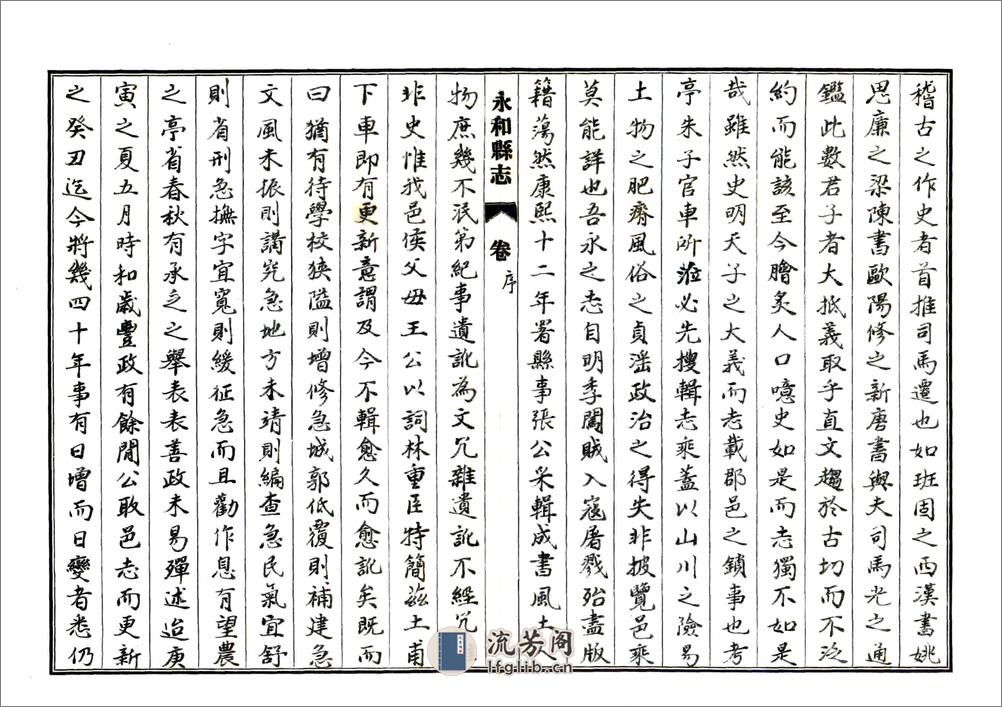 稽古之作史者首推司馬遷也如班固之西漢書姚
思廉之梁陳書歐陽修之新唐書與夫司馬光之通
鑑此數君子者大抵義取乎直文趨於古切而不泛
約而能該至今膾炙人口噫史如是而志獨不如是
哉雖然史明天子之大義而志載郡邑之鎖事也考
亭朱子官車所蒞必先搜輯志乘蓋以山川之險易
土物之肥瘠風俗之貞滛政治之得失非披覽邑乘
莫能詳也吾永之志自明季闖賊入寇屠戮殆盡版
籍蕩然康熙十二年署縣事張公采輯成書風土
永和縣志 卷 序
物庶幾不泯第紀事遺訛為文冗雜遺訛不經冗
非史惟我邑侯父母王公以詞林重臣特簡茲土甫
下車即有更新意謂及今不輯愈久而愈訛矣既而
曰猶有待學校狹隘則增修急城郭低覆則補建急
文風未振則講究急地方未靖則編查急民氣宜舒
則省刑急撫字宜寬則緩征急而且勸作息有望農
之亭省春秋有承乏之舉表表善政未易殫述迨庚
寅之夏五月時和歲豐政有餘閒公取邑志而更新
之癸丑迄今將幾四十年事有日增而日變者悉仍
流芳阁
lfglib.cn